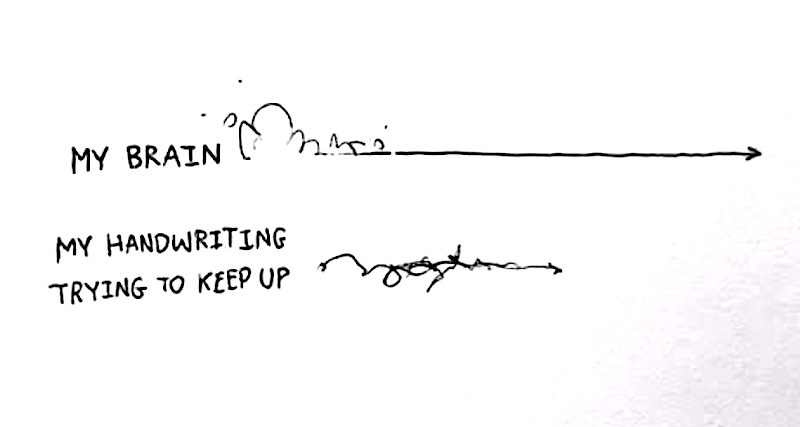 MY BRAIN
MY HANDWRITING
TRYING TO KEEP UP